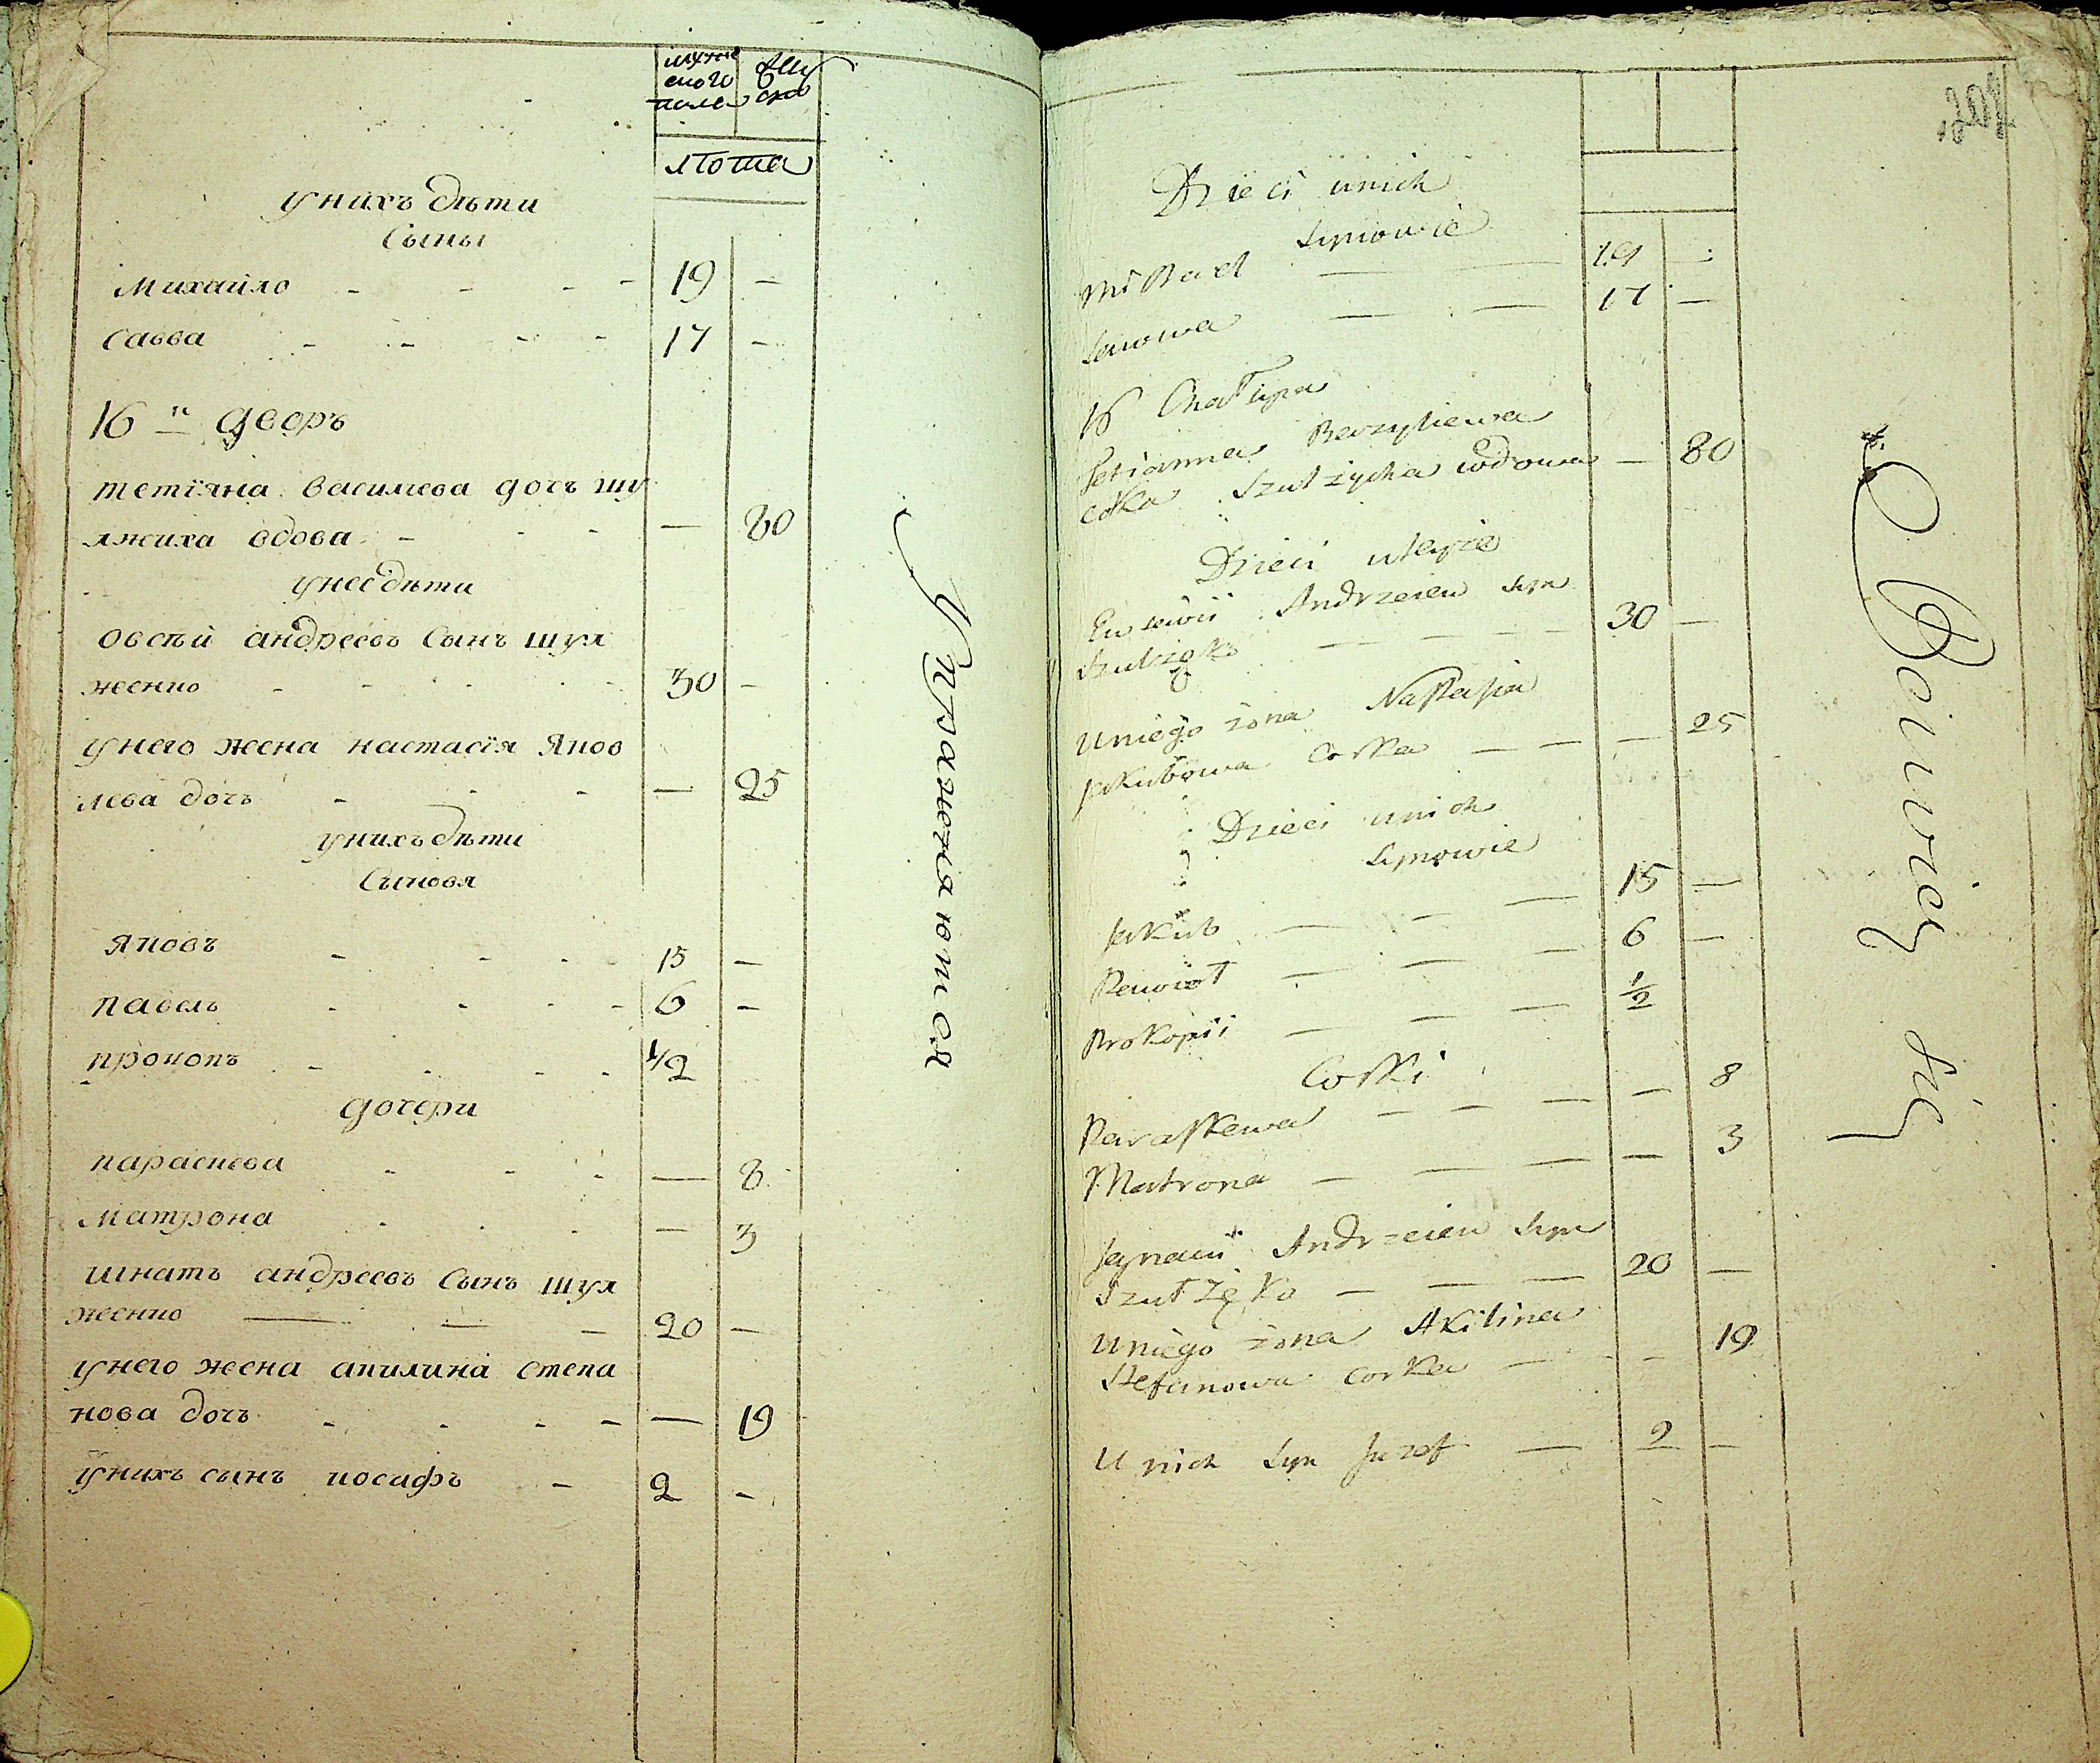 мужескогополаженско
лѣта
унихъ дѣти
Сыны
Михайло - - - - 19 -
Савва - - - - 17 -
16 й дворъ
тетїяна василиева дочъ шу
лжиха вдова - - - — 80
унее дѣти
овсѣй андреевъ Сынъ шул
женко - - - - 30 -
унего жена настасїя Яков
лева дочь - - - — 25
унихъ дѣти
Сыновя
Яковъ - - - 15 —
павелъ - - - - 6 -
прокопъ - - - - 1/2
дочери
параскева - - - — 8
Матрона - - - — 3
игнатъ андреевъ Сынъ шул
женко — — - 20 —
унего жена акилина степа
нова дочъ - - - - — 19
унихъ сынъ иосифъ - 2 -
Упражняются
Dzieci unich
Synowie
Michael — — 19 -
Sawwa — — 17 —
16 Chatupa
Tetianna Bazyliewa
corka Szulżycha wdowa — 80
Dzieci u teyże
Eusewii Andrzeiew Syn
Szulżęko — — — — 30 —
Uniego żona Nastasia
Jakubowa Corka — — — 25
Dzieci unich
Synowie
Jakub — — — 15 —
Paweł — — — 6 —
Prokopii — — — 1/2
Corki
Paraskewa — — — — 8
Matrona — — — — 3
Ignacii Andrzeiew Syn
Szulżęko — — — 20 —
Uniego żona Akilina
Stefanowa corka — - — 19
Unich Syn Jozef — 2 —
Bawią się